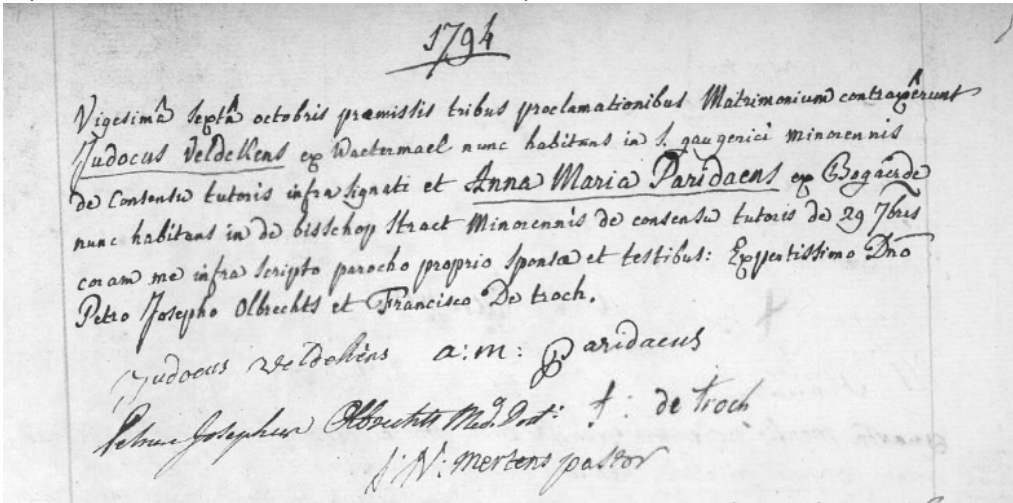 1794
Vigesimâ septâ octobris præmissis tribus proclamationibus Matrimonium contraxêrunt
Judocus Veldekens ex Waetermael nunc habitans in S. gaugerici minorennis
de Consensu tutoris infra signati et Anna Maria Paridaens ex Bogaerde
nunc habitans in de bisschop straet Minorennis de consensu tutoris de 29 7bris
coram me infra scripto parocho proprio sponsæ et testibus: Expertissimo Dno
Petro Josepho Olbrechts et Francisco De troch.
Judocus Veldekens a: m: Paridaens
Petrus Josephus Olbrechts Med: Doct: f: de troch
J: N: mertens pastor